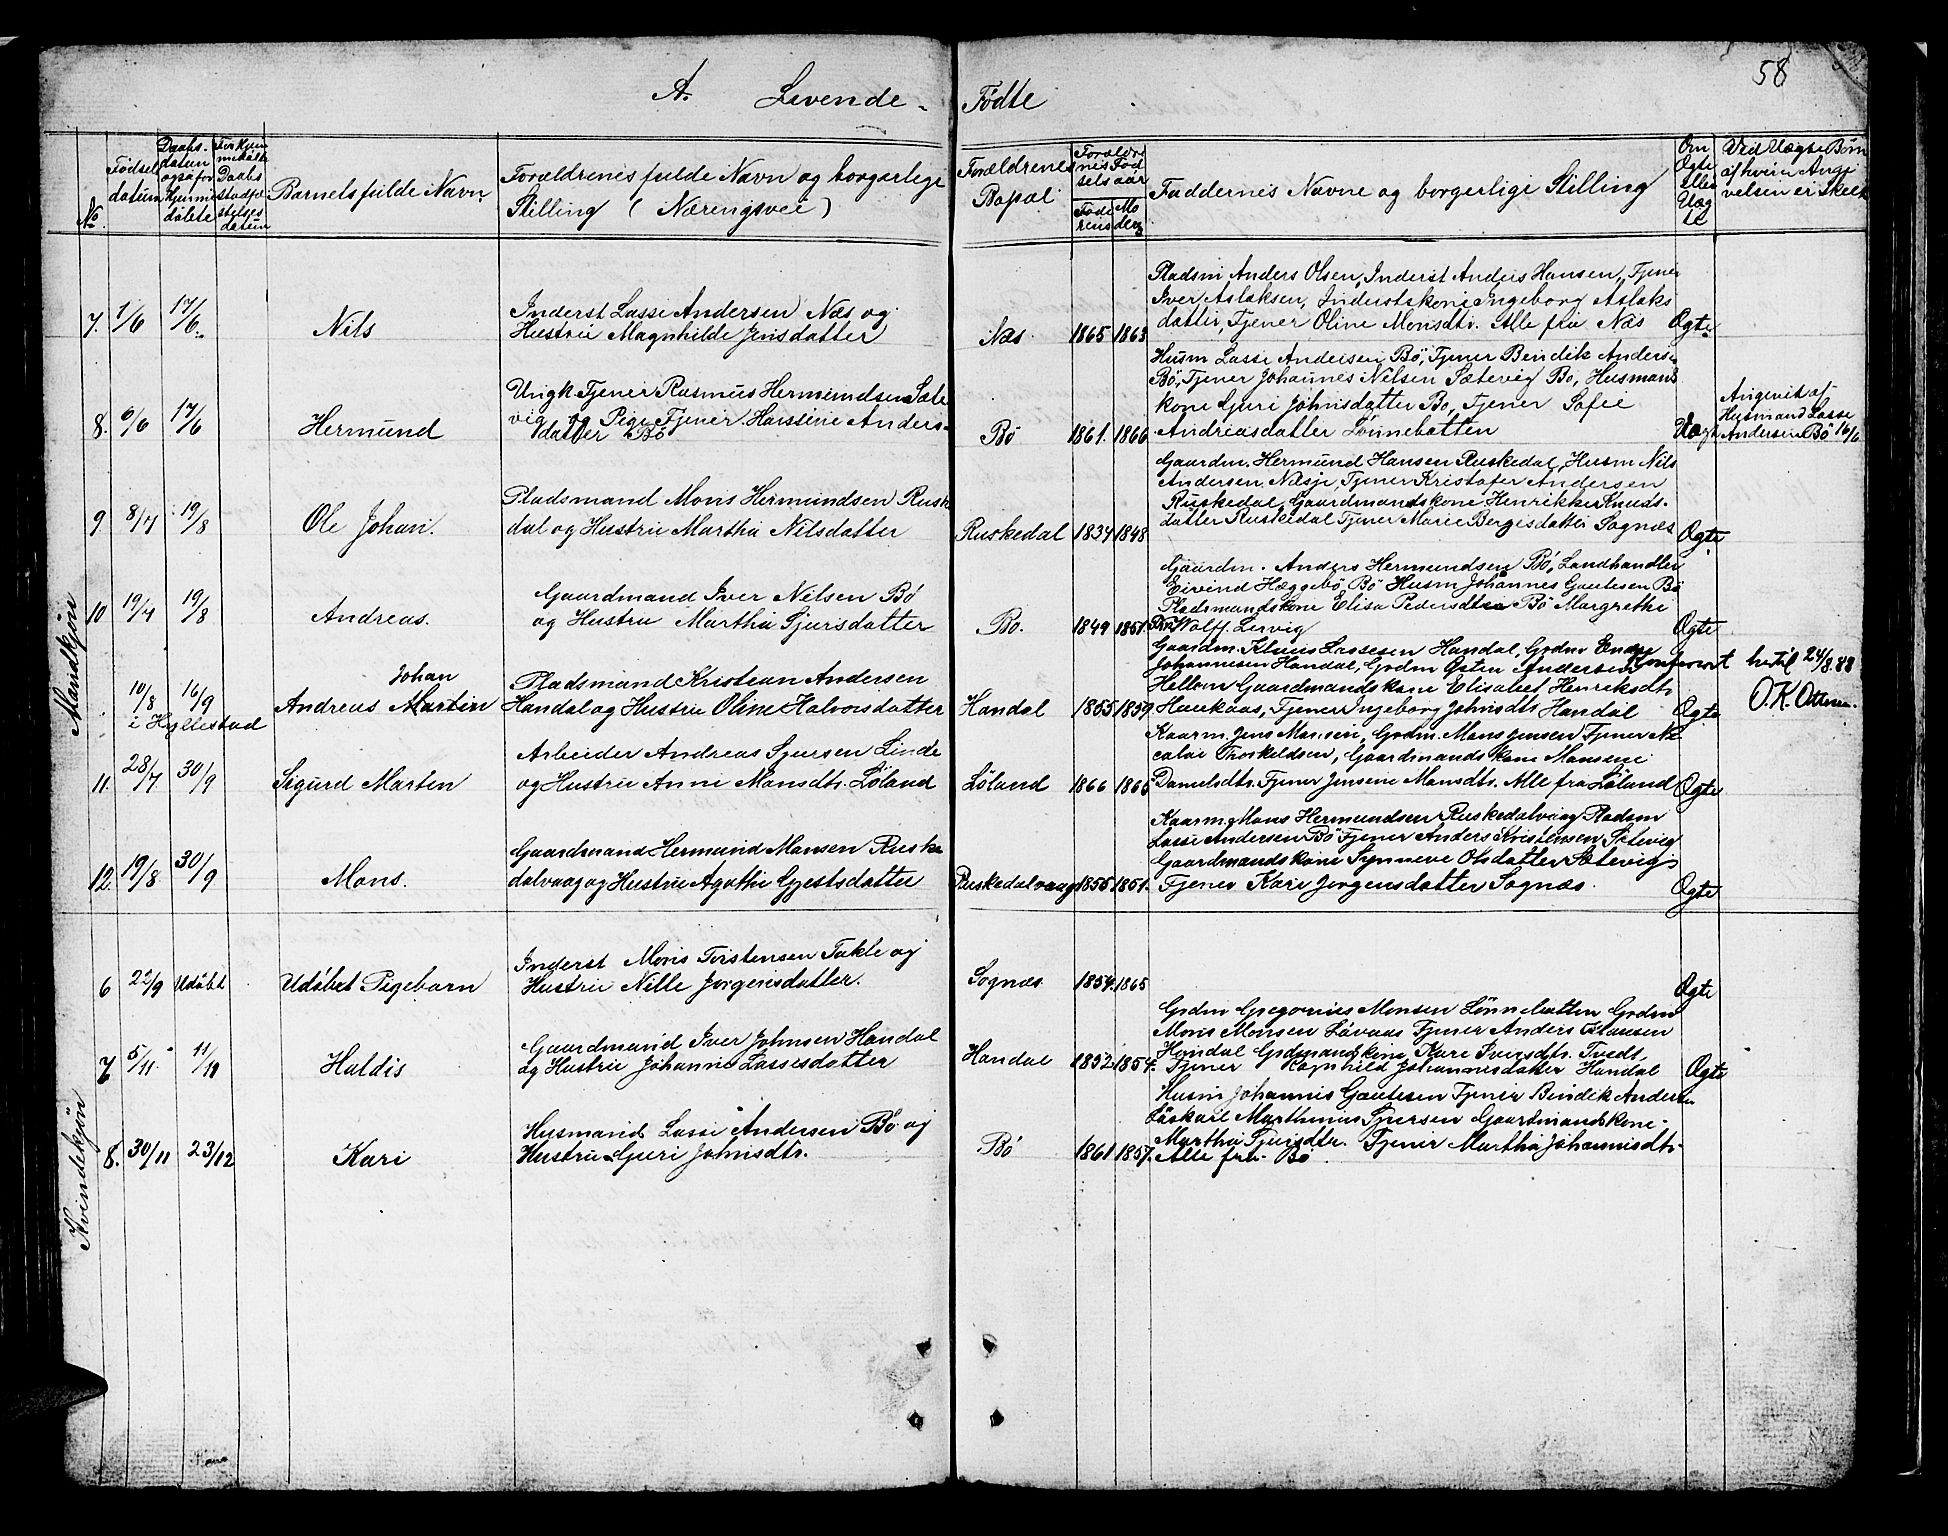 58
A. Levende Födte
No
Födsels datum
Daabs- datum ogsaa for Hjemme döbte
For Hjem medöbte Daabs stadfæ stelses datum
Barnets fulde Navn.
Forældrenes fulde Navn og borgerlige Stilling (Næringsvei)
Forældrenes Bopæl
Forældre nes Föd sels aar
Fade rens
Mo dens
Faddernes Navne og borgerlige Stilling
Om Ægte Eller Uæg te
Ved Uægte Börn af hvem Angi velsen er skeet
Mandkjön
7. 1/6 17/6. Nils
Inderst Lasse Andersen Næs og
Hustru Magnhilde Jensdatter
Næs. 1865 1863
Pladsm Anders Olsen, Inderst Anders Hansen, Tjener
Iver Aslaksen, Inderstkone Ingeborg Aslaks
datter, Tjener Oline Monsdtr. Alle fra Næs
Ægte
8. 6/6 17/6 Hermund
Ungk Tjener Rasmus Hermundsen Sæte
vig og Pige Tjener Hansine Anders-
datter Bö
Bö 1861. 1866
Husm Lasse Andersen Bö, Tjener Bendik Anders.
Bö, Tjener Johannes Nilsen Sætevig Bö, Husmans
kone Guri Johnsdatter Bö, Tjener Sofie
Andreasdatter Lönnebotten
Uægt
Angivet af
Husmand Lasse
Andersen Bö 16/6
9 8/7 19/8 Ole Johan.
Pladsmand Mons Hermundsen Ruske
dal og Hustru Martha Nilsdatter
Ruskedal 1834 1848
Gaardm. Hermund Hansen Ruskedal, Husm Nils
Andersen Næsje, Tjener Kristofer Andersen
Ruskedal, Gaardmandskone Henrikke Knuds-
datter Ruskedal Tjener Marie Bergesdatter Sognæs
Ægte
10 19/7 19/8 Andreas.
Gaardmand Iver Nilsen Bö
og Hustru Martha Sjursdatter
Bö. 1849 1851.
Gaardm. Anders Hermundsen Bö, Landhandler
Eivind Hæggebö, Bö Husm Johannes Gautesen Bö
Pladsmandskone Elisa Pedersdtr Bö Margrethe
Wolff. Lervig
Ægte
10/8 16/9
i Hyllestad
Johan
Andreas Martin
Pladsmand Kristian Andersen
Handal og Hustru Oline Halvorsdatter
Handal 1855 1859
Gaardm. Klaus Lassesen Handal, Grdm Endre
Johannesen Handal, Grdm Østen Andersen
Hellem Gaardmandskone Elisabet Henriksdtr
Haukaas, Tjener Ingeborg Johnsdtr Handal
Ægte
Konfereret hertil 24/8. 88
O. K. Ottesen.
11. 28/7 30/9 Sigurd Marten
Arbeider Andreas Sjursen Linde
og Hustru Anne Monsdtr. Löland
Löland 1866 1865
Kaarm. Jens Monsen, Grdm. Mons Jensen Tjener Ni
colai Throkeldsen, Gaardmandskone Monsine
Danielsdtr. Tjener Jensine Monsdtr. Alle fra Löland
Ægte
12. 19/8 30/9 Mons.
Gaardmand Hermund Monsen Ruske
dalvaag og Hustru Agathe Gjestsdatter
Ruskedalvaag 1855 1851.
Kaarm Mons Hermundsen Ruskedalvaag Pladsm
Lasse Andersen Bö Tjener Anders Kristensen Sætevig
Gaardmandskone Synneve Olsdatter Sætevig
Tjener Kari Jorgensdatter Sognæs.
Ægte
Kvindekjön
6 22/9 Udöbt Udöbet Pigebarn
Inderst Mons Torstensen Takle og
Hustru Nille Jorgensdatter.
Sognæs 1854. 1865
Ægte
7 5/11. 11/11 Haldis
Gaardmand Iver Johnsen Handal
og Hustru Johanne Lassesdatter
Handal 1852. 1854.
Grdm Gregorius Monsen Lönnebotten Grdm
Mons Monsen Lövaas Tjener Anders Hansen
Handal Grdmandskone Kari Iversdtr. Tvedt
Tjener Ragnhild Johannesdatter Handal
Ægte
8. 30/11 23/12 Kari
Husmand Lasse Andersen Bö og
Hustru Guri Johnsdtr.
Bö 1861 1857.
Husm Johannes Gautesen Tjener Bendik Andersen
Löskarl Marthinus Sjursen Gaardmandskone
Martha Sjursdtr. Tjener Martha Johannesdtr.
Alle fra Bö